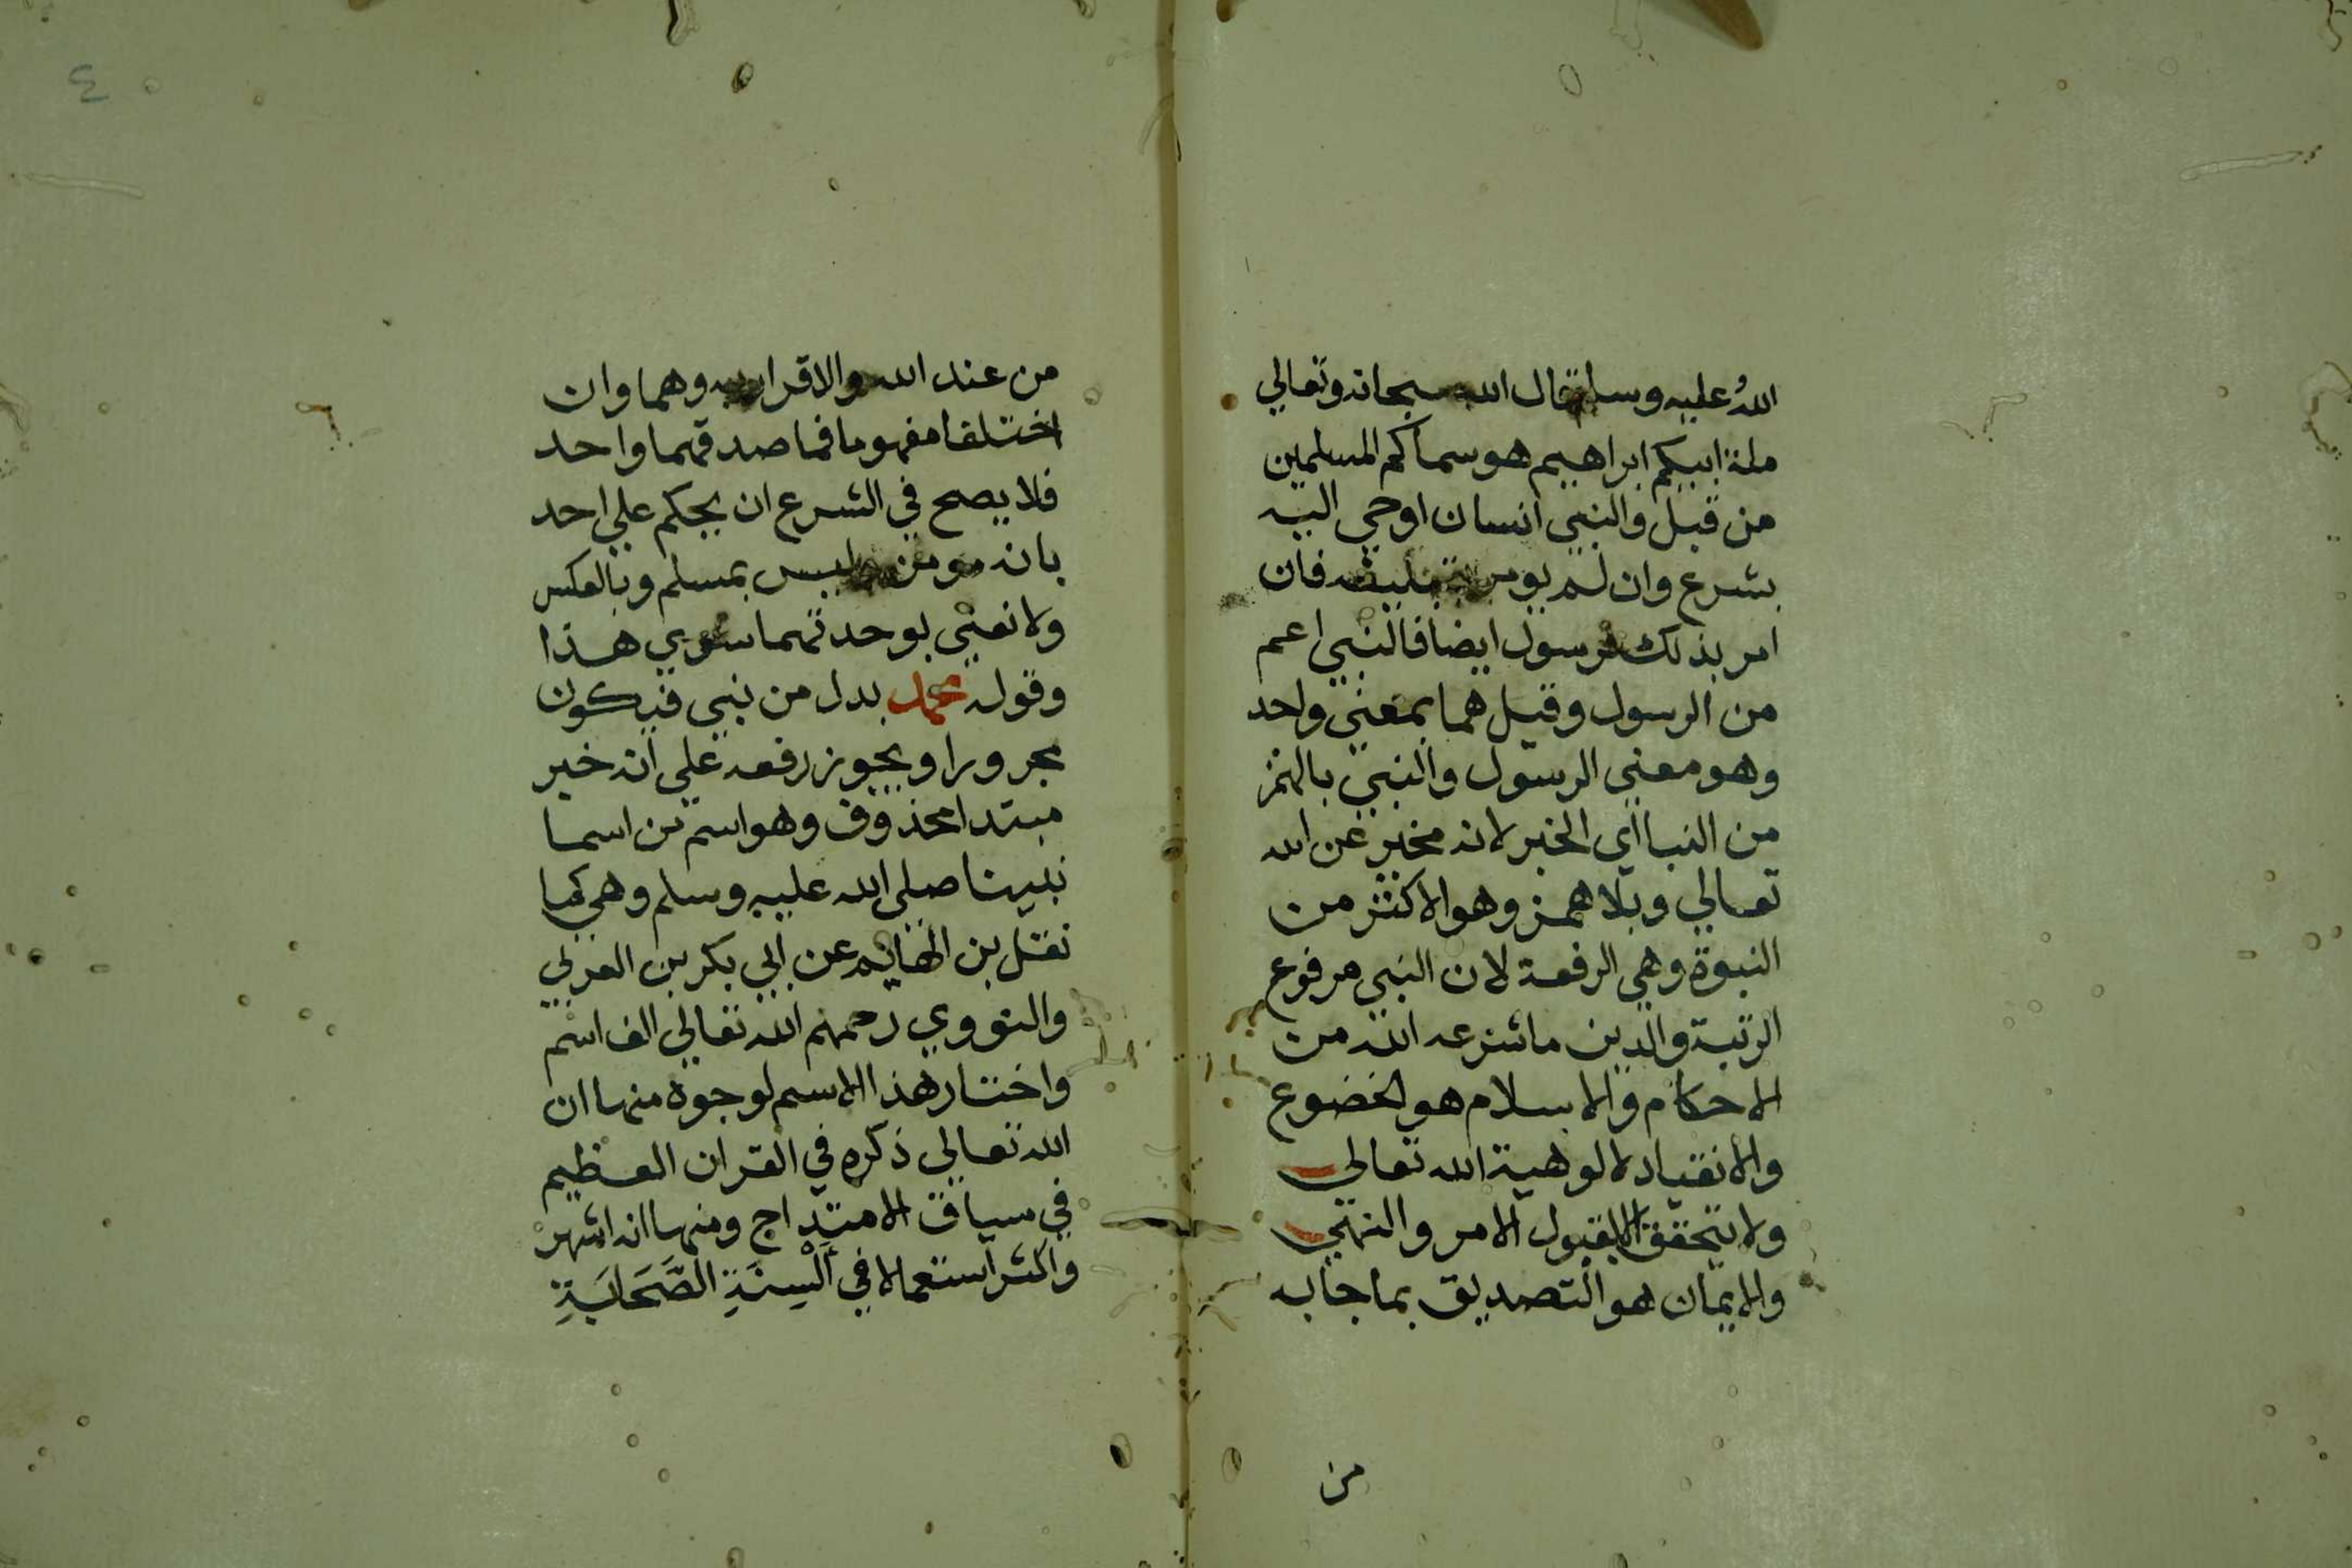 الله عليه وسلم قال الله سبحانه وتعالي
ملة ابيكم ابراهيم هو سماكم المسلمين
من قبل والنبي انسان اوحي اليه
بشرع وان لم يومر بتبليغه فان
امر بذلك فرسول ايضا فالنبي اعم
من الرسول وقيل هما بمعني واحد
وهو معني الرسول والنبي بالهمز
من النبا اي الخبر لانه مخبر عن الله
تعالي وبلا همز وهو الاكثر من
النبوة وهي الرفعة لان النبي مرفوع
الرتبة والدين ما شرعه الله من
الاحكام والاسلام هو الخضوع
والانقياد لالوهية الله تعالي
ولا يتحقق الا بقبول الامر والنهي
والايمان هو التصديق بما جا به
من
٤
من عند الله والاقرار به وهما وان
اختلفا مفهوما فما صدقهما واحد
فلا يصح في الشرع ان يحكم علي احد
بانه مومن وليس بمسلم وبالعكس
ولا نعني بوحدتهما سوي هذا
وقوله محمد بدل من نبي فيكون
مجرورا ويجوز رفعه علي انه خبر
مبتدا محذوف وهو اسم من اسما
نبينا صلي الله عليه وسلم وهي كما
نقل بن الهايم عن ابي بكر بن العربي
والنووي رحمهم الله تعالي الف اسم
واختار هذا الاسم لوجوه منها ان
الله تعالي ذكره في القران العظيم
في سياق الامتداح ومنها انه اشهر
واكثر استعمالا في اَلْسِنَةِ الصَّحَابَةِ